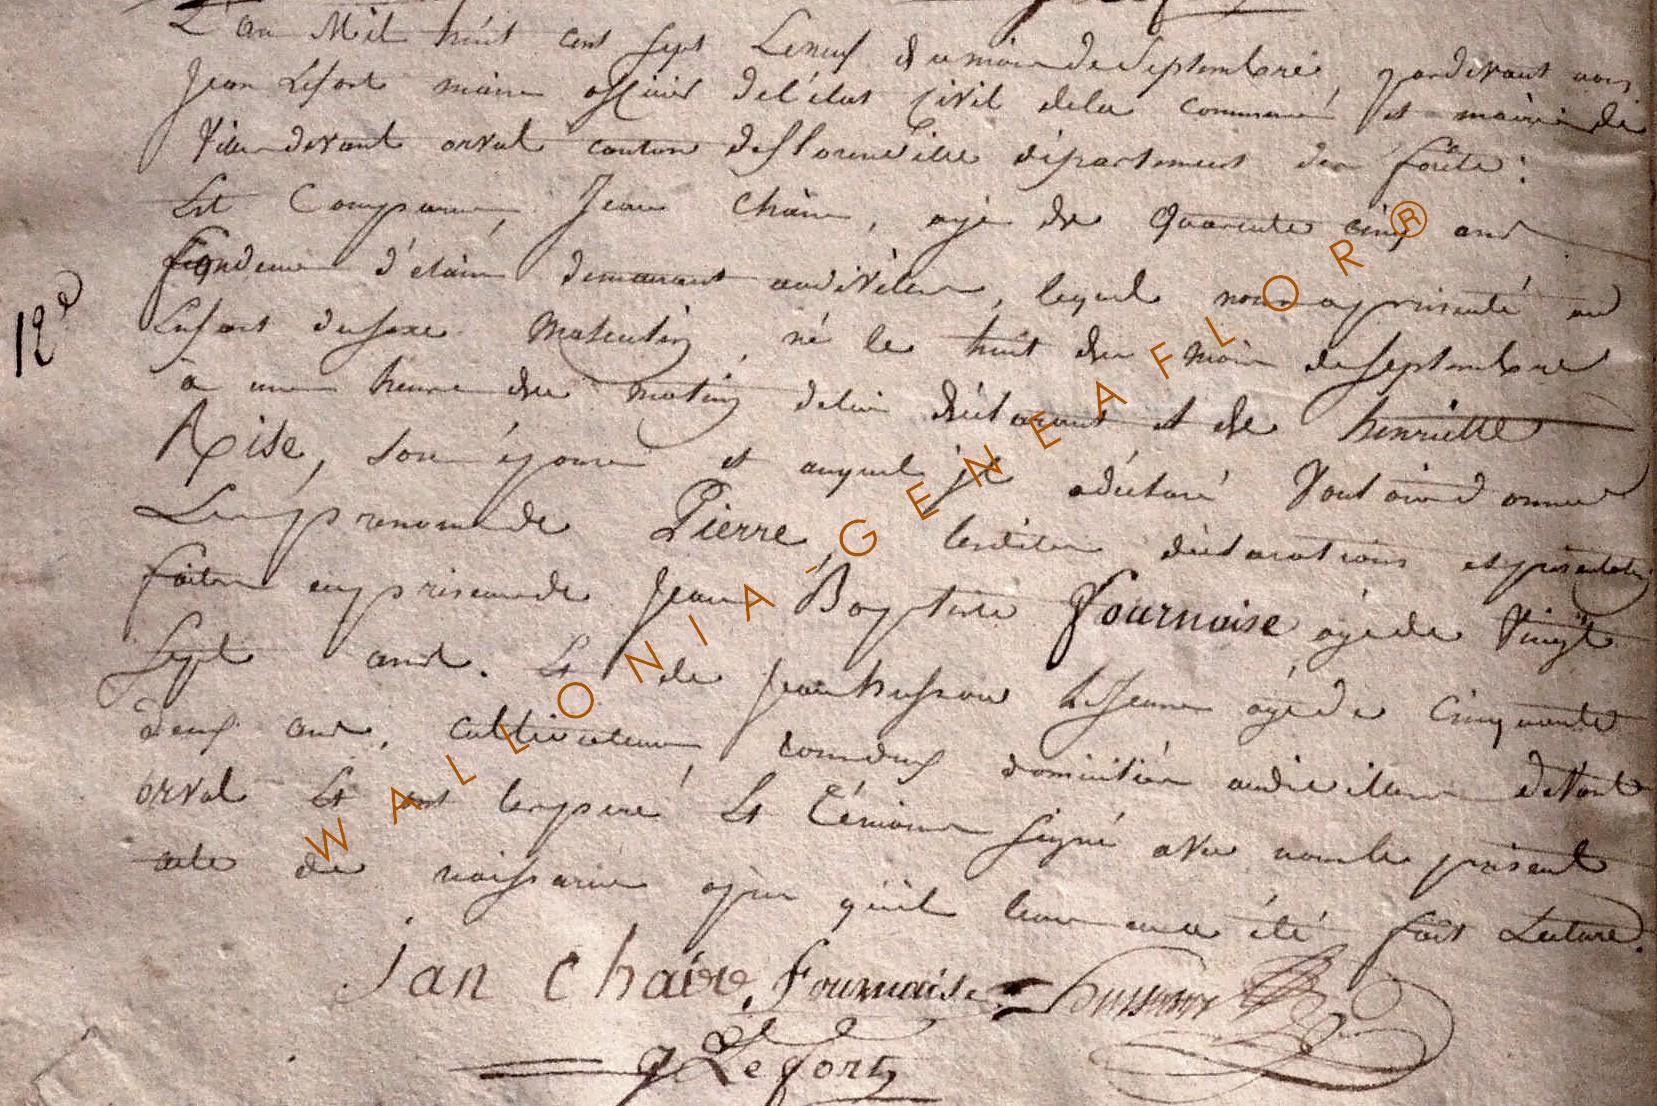 L'an Mil huit cent sept Le neuf du mois de Septembre, pardevant nous
Jean Lefort maire officier de l'état Civil de la commune et mairie de
Villerdevant orval canton de florenville département des forêts:
Est Comparu, Jean Chaire, agé de quarante cinq ans
fondeur d'étain demeurant audi Viler, lequel nous a présenté un
Enfant du sexe Masculin, né le huit du mois de Septembre
à une heure du matin de lui déclarant et de henriette
son épouse et auquel il a déclaré Vouloir donner
Le prénom de Pierre, lesdites déclarations et présentation
faites en présence de Jean Baptiste fournaise âgé de Vingt
Sept ans. Et de Jean husson le Jeune agé de Cinquante
deux ans, cultivateurs, tous deux domiciliés audi viller devant
orval Et ont le père Et Témoins signé avec nous le présent
acte de naissance après qu'il leur en a été fait Lecture.
12e
Jan Chaire, fournaise husson
J Lefort
WALLONIA-GENEAFLOR®